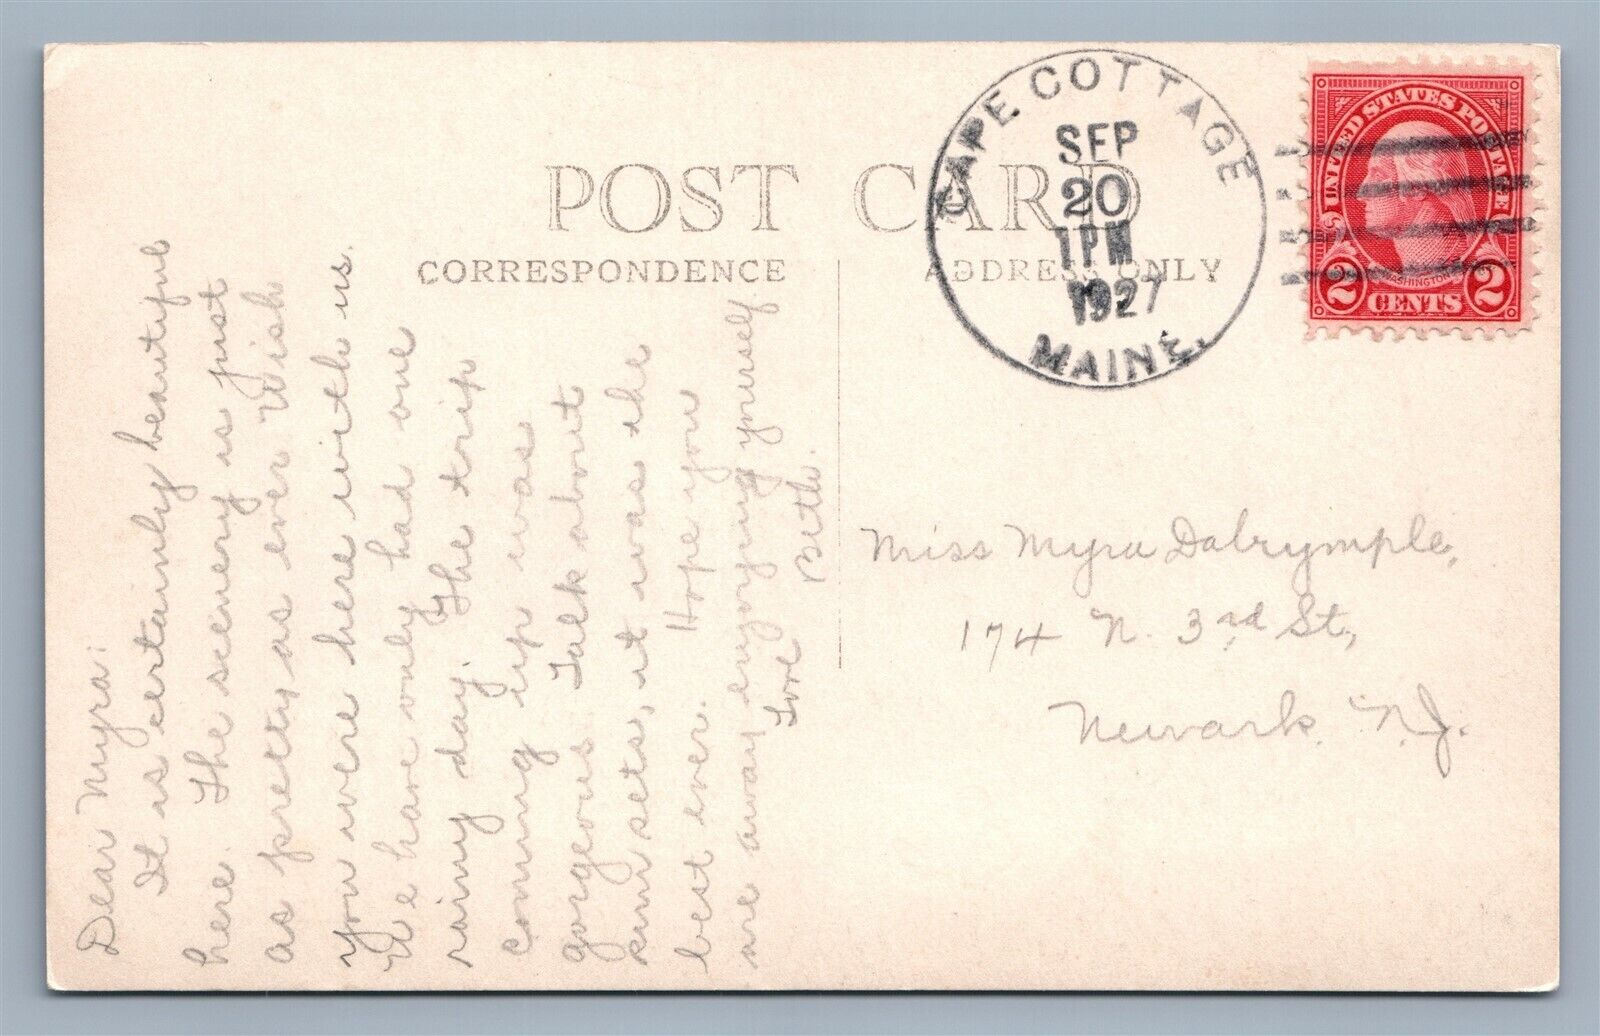 POST CARD
CORRESPONDENCE
ADDRESS ONLY
CAPE COTTAGE
SEP
20
1 PM
1927
MAINE.
UNITED STATES POSTAGE
WASHINGTON
2 CENTS 2
Dear Myra:
It is certainly beautiful
here. The scenery is just
as pretty as ever. Wish
you were here with us.
We have only had one
rainy day. The trip
coming up was
gorgeous. Talk about
sun sets, it was the
best ever. Hope you
are away enjoying yourself.
Love
Beth.
Miss Myra Dalrymple,
174 N. 3rd St.,
Newark, N.J.